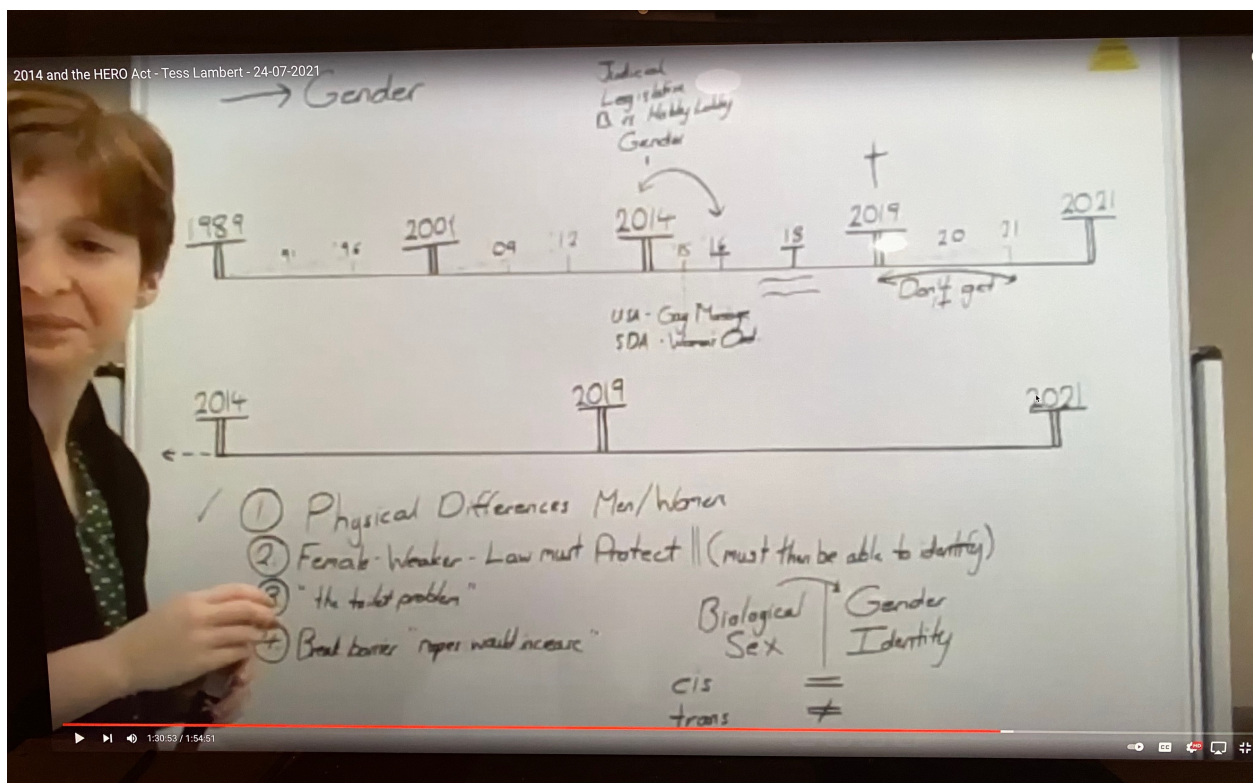 2014 and the HERO Act - Tess Lambert - 24-07-2021
→ Gender
Judicial
Legislative
B vs Hobby Lobby
Gender
1989 91 '96 2001 09 '12 2014 15 16 18 2019 20 21 2021
Don't get
USA - Gay Marriage
SDA - Women's Ord.
2014 2019 2021
1 Physical Differences Men/Women
2. Female - Weaker - Law must Protect || (must then be able to identify)
3 "the toilet problem"
4. Break barrier "rapes would increase"
Biological Sex
Gender Identity
cis =
trans ≠
1:30:53 / 1:54:51
CC
HD